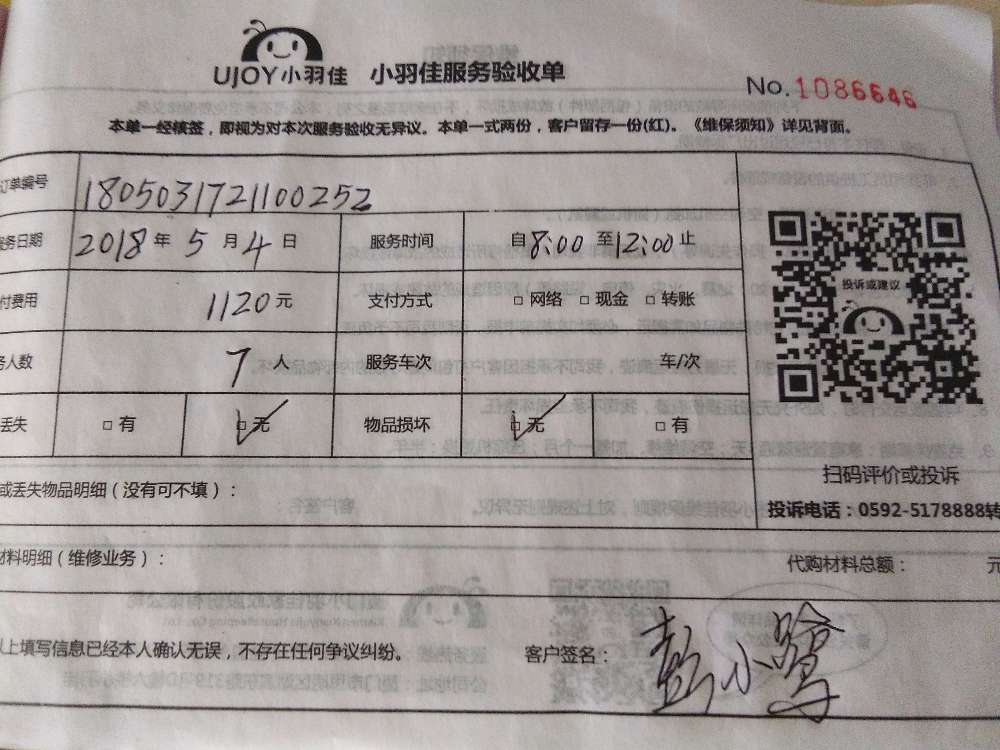 UJOY小羽佳 小羽佳服务验收单
No.1086646
本单一经核签，即视为对本次服务验收无异议。本单一式两份，客户留存一份(红)。《维保须知》详见背面。
订单编号 1805031721100252
服务日期 2018年5月4日 服务时间 自8:00至12:00止
付费用 1120元 支付方式 □网络 □现金 □转账
务人数 7人 服务车次 车/次
丢失 □有 □无 物品损坏 □无 □有
投诉或建议
扫码评价或投诉
投诉电话：0592-5178888转
或丢失物品明细（没有可不填）：
材料明细（维修业务）： 代购材料总额： 元
以上填写信息已经本人确认无误，不存在任何争议纠纷。 客户签名：彭小